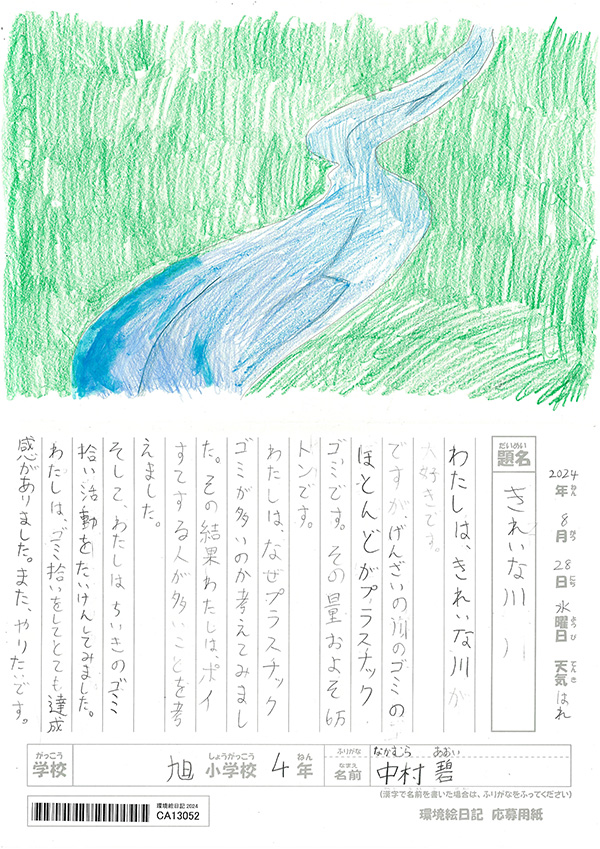 2024年ねん 8月がつ 28日にち 水曜日ようび 天気てんき はれ
だいめい
題名 きれいな川
わたしは、きれいな川が
大好きです。
ですが、げんざいの川のゴミの
ほとんどがプラスチック
ゴミです。その量およそ6万
トンです。
わたしは、なぜプラスチック
ゴミが多いのか考えてみまし
た。その結果わたしは、ポイ
すてする人が多いことを考
えました。
そして、わたしはちいきのゴミ
拾い活動をたいけんしてみました。
わたしは、ゴミ拾いをしてとても達成
感がありました。また、やりたいです。
がっこう しょうがっこう ねん ふりがな なかむら あおい
学校 旭 小学校 4年 なまえ 名前 中村 碧
(漢字で名前を書いた場合は、ふりがなをふってください)
環境絵日記 2024
CA13052
環境絵日記 応募用紙